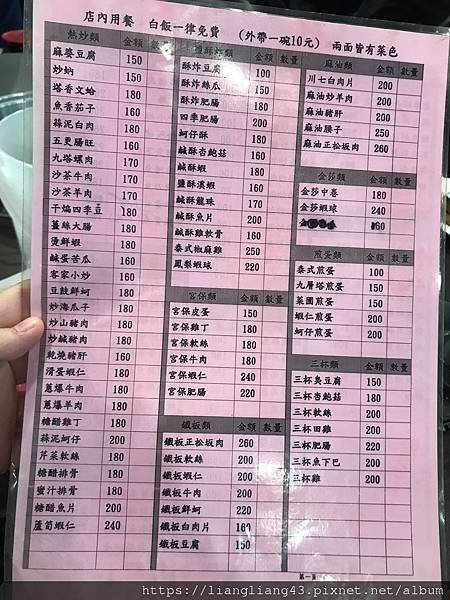 店內用餐 白飯一律免費 (外帶一碗10元) 兩面皆有菜色
熱炒類 金額 數量
麻婆豆腐 150
炒蚋 150
塔香文蛤 180
魚香茄子 160
蒜泥白肉 180
五更腸旺 160
九塔螺肉 170
沙茶牛肉 170
沙茶羊肉 170
干煸四季豆 180
薑絲大腸 180
燙鮮蝦 180
鹹蛋苦瓜 160
客家小炒 160
豆鼓鮮蚵 180
炒海瓜子 180
炒山豬肉 180
炒鹹豬肉 180
乾燒豬肝 160
滑蛋蝦仁 180
蔥爆牛肉 180
蔥爆羊肉 180
糖醋雞丁 180
蒜泥蚵仔 200
芹菜軟絲 200
糖醋排骨 180
蜜汁排骨 180
糖醋魚片 200
蘆筍蝦仁 240
鹽酥炸類 金額 數量
酥炸豆腐 100
酥炸絲瓜 150
酥炸肥腸 180
四季肥腸 200
蚵仔酥 180
鹹酥杏鮑菇 160
鹹酥蝦 180
鹽酥溪蝦 160
鹹酥龍珠 170
鹹酥魚片 200
鹹酥雞軟骨 160
泰式椒麻雞 250
鳳梨蝦球 220
宮保類 金額 數量
宮保皮蛋 150
宮保雞丁 180
宮保軟絲 180
宮保牛肉 180
宮保蝦仁 240
宮保肥腸 220
鐵板類 金額 數量
鐵板正松坂肉 260
鐵板軟絲 200
鐵板蝦仁 200
鐵板牛肉 200
鐵板鮮蚵 220
鐵板白肉片 160
鐵板豆腐 150
麻油類 金額 數量
川七白肉片 200
麻油炒羊肉 200
麻油豬肝 200
麻油腰子 250
麻油正松坂肉 260
金莎類 金額 數量
金莎中卷 180
金莎蝦球 240
160
煎蛋類 金額 數量
泰式煎蛋 100
九層塔煎蛋 150
菜圃煎蛋 150
蝦仁煎蛋 200
蚵仔煎蛋 200
三杯類 金額 數量
三杯臭豆腐 150
三杯杏鮑菇 180
三杯軟絲 200
三杯田雞 200
三杯肥腸 220
三杯魚下巴 200
三杯雞 200
第一頁
https://liangliang43.pixnet.net/album